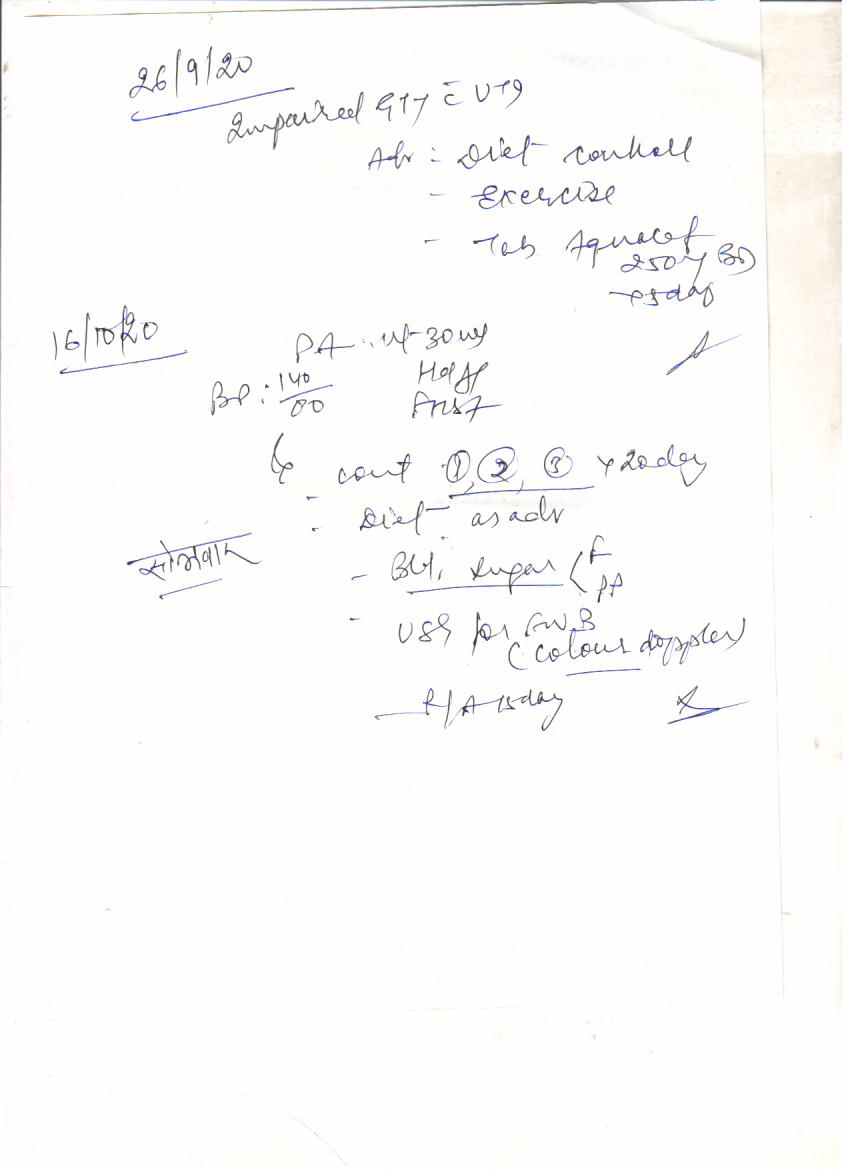 26/9/20
Impaired GTT c̄ UTI
Adv : Diet controll
- Exercise
- Tab
250mg BD
x 5 day
16/10/20
PA : ut - 30 wk
BP : 140/80
FHS+
cont ①, ②, ③ x 20 day
- Diet as adv
सोमवार
- Bld. sugar < F
PP
- USG for FWB
(colour doppler)
R/A 15 day